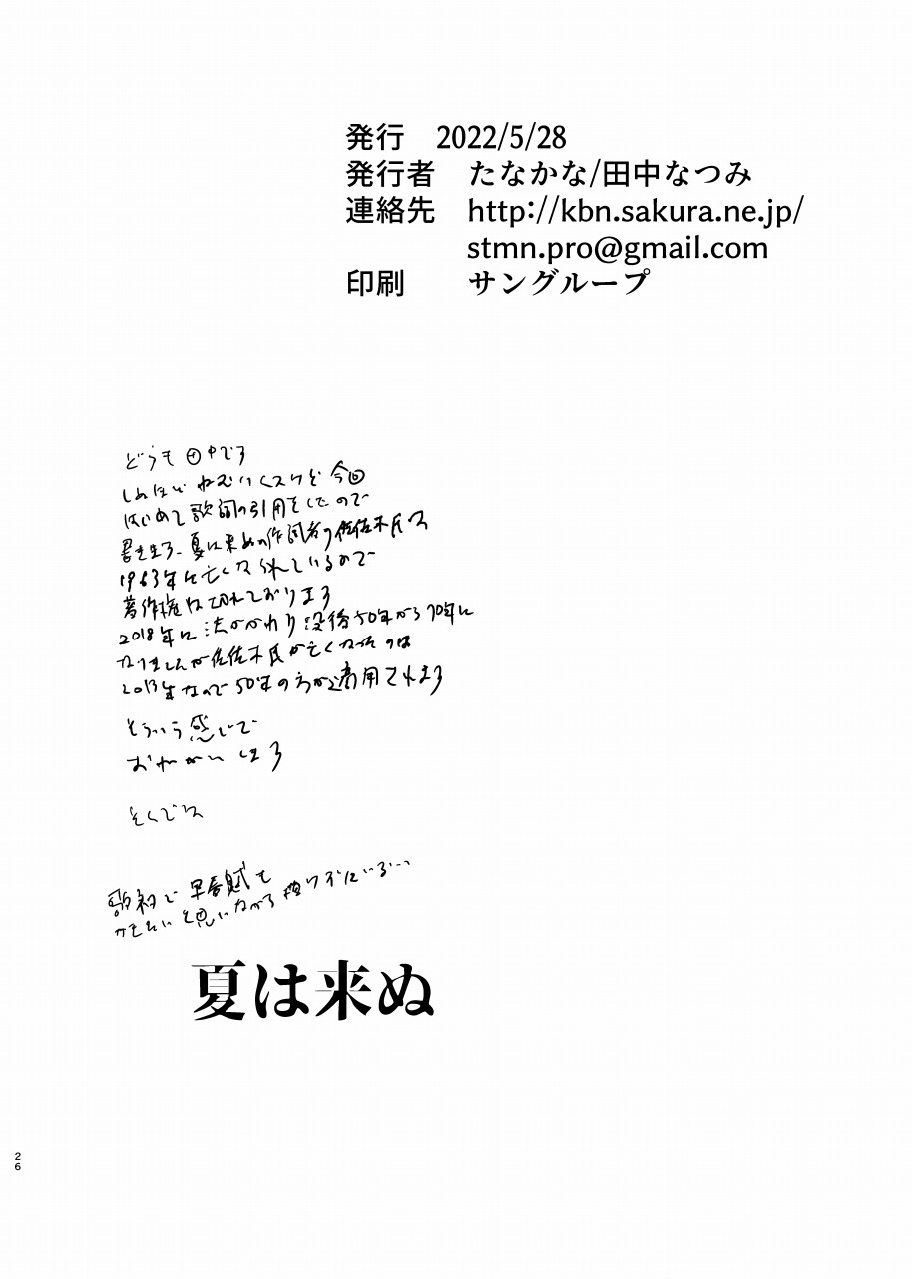 発行　2022/5/28
発行者　たなかな/田中なつみ
連絡先　http://kbn.sakura.ne.jp/
stmn.pro@gmail.com
印刷　サングループ
どうも 田中です
今回
はじめて歌詞の引用をしたので
書きます、夏は来ぬの作詞者の佐佐木氏は
1963年に亡くなられているので
著作権は切れております
2018年に法がかわり没後50年から70年に
なりましたが佐佐木氏が亡くなったのは
2013年なので50年の方が適用されます
そういう感じで
おねがいします
それでは
早春賦も
と思いながら
夏は来ぬ
26